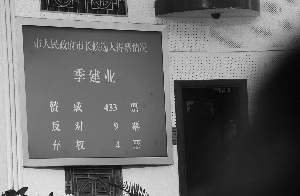 市人民政府市长候选人得票情况
季建业
赞成 433 票
反对 9 票
弃权 4 票